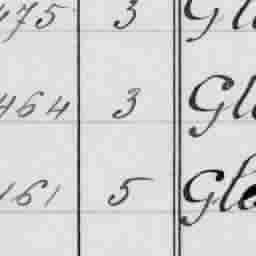 475 3 Gl
464 3 Gl
161 5 Gle